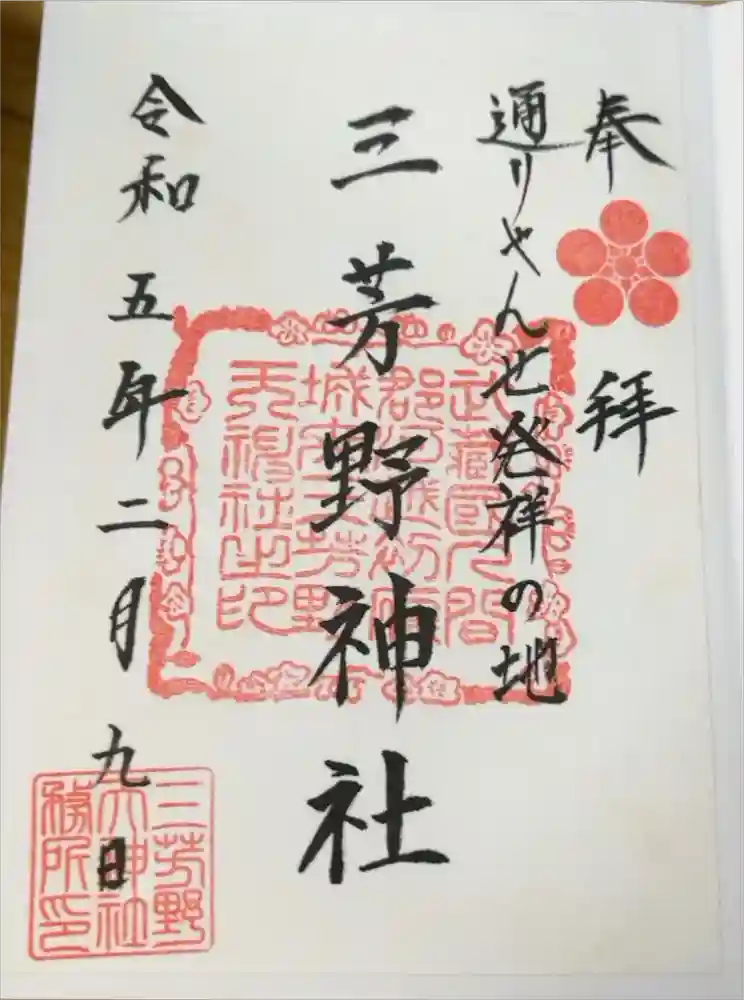 奉拝
通りやんせ発祥の地
三芳野神社
令和五年二月九日
武藏國入間
郡河越初雁
城内三芳野
天神社之印
三芳野
神社
務所印